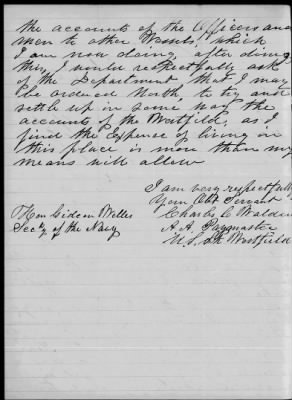 the accounts of the Officers and
men to other Vessels, which
I am now doing, after doing
this, I would respectfully ask
of the Department that I may
be ordered North to try and
settle up in some way the
accounts of the Westfield, as I
find the Expense of living in
this place is more than my
means will allow
I am very respectfully
Your Obt Servant
Charles C Walden
A. A. Paymaster
U.S.S. Westfield
Hon Gideon Welles
Secy of the Navy